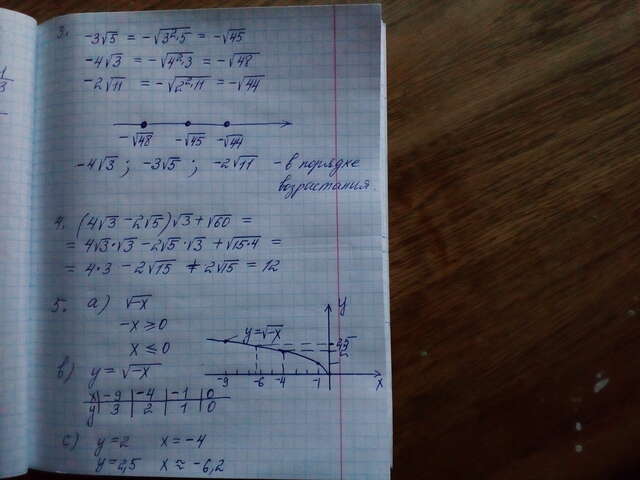 3.
-3√5 = -√(3²·5) = -√45
-4√3 = -√(4²·3) = -√48
-2√11 = -√(2²·11) = -√44
-√48 -√45 -√44
-4√3 ; -3√5 ; -2√11 - в порядке
возрастания.
4. (4√3 - 2√5)√3 + √60 =
= 4√3·√3 - 2√5·√3 + √15·4 =
= 4·3 - 2√15 + 2√15 = 12
5. a) √-x
-x ≥ 0
x ≤ 0
y
y = √-x
2
-9 -6 -4 -1 x
b) y = √-x
x -9 -4 -1 0
y 3 2 1 0
c) y = 2 x = -4
y = 2,5 x ≈ -6,2